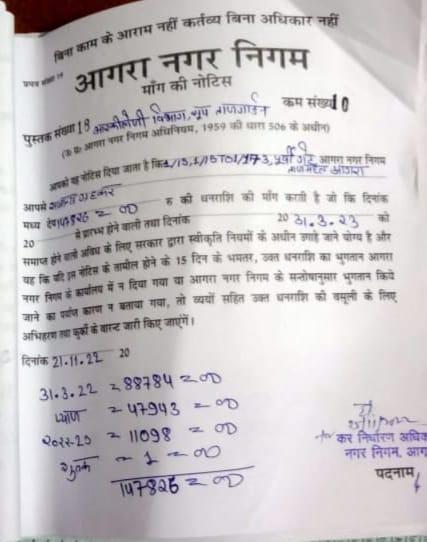 बिना काम के आराम नहीं कर्तव्य बिना अधिकार नहीं
आगरा नगर निगम
माँग की नोटिस
पुस्तक संख्या 18 क्रम संख्या 10
(उ. प्र. आगरा नगर निगम अधिनियम, 1959 की धारा 506 के अधीन)
आपको यह नोटिस दिया जाता है कि आगरा नगर निगम
आपसे रु की धनराशि की माँग करती है जो कि दिनांक
मध्य 147826 = 00
20 से प्रारम्भ होने वाली तथा दिनांक 20 31.3.23 को
समाप्त होने वाले अवधि के लिए सरकार द्वारा स्वीकृति नियमों के अधीन उगाहे जाने योग्य है और
यह कि यदि इस नोटिस के तामील होने के 15 दिन के भीतर, उक्त धनराशि का भुगतान आगरा
नगर निगम के कार्यालय में न दिया गया या आगरा नगर निगम के सन्तोषानुसार भुगतान किये
जाने का पर्याप्त कारण न बताया गया, तो व्ययों सहित उक्त धनराशि की वसूली के लिए
अभिहरण तथा कुर्की के वारन्ट जारी किए जाएंगें।
दिनांक 21.11.22 20
31.3.22 = 88784 = 00
ब्याज = 47943 = 00
= 11098 = 00
शुल्क = 1 = 00
147826 = 00
25/11/2022
कर निर्धारण अधिक
नगर निगम, आग
पदनाम